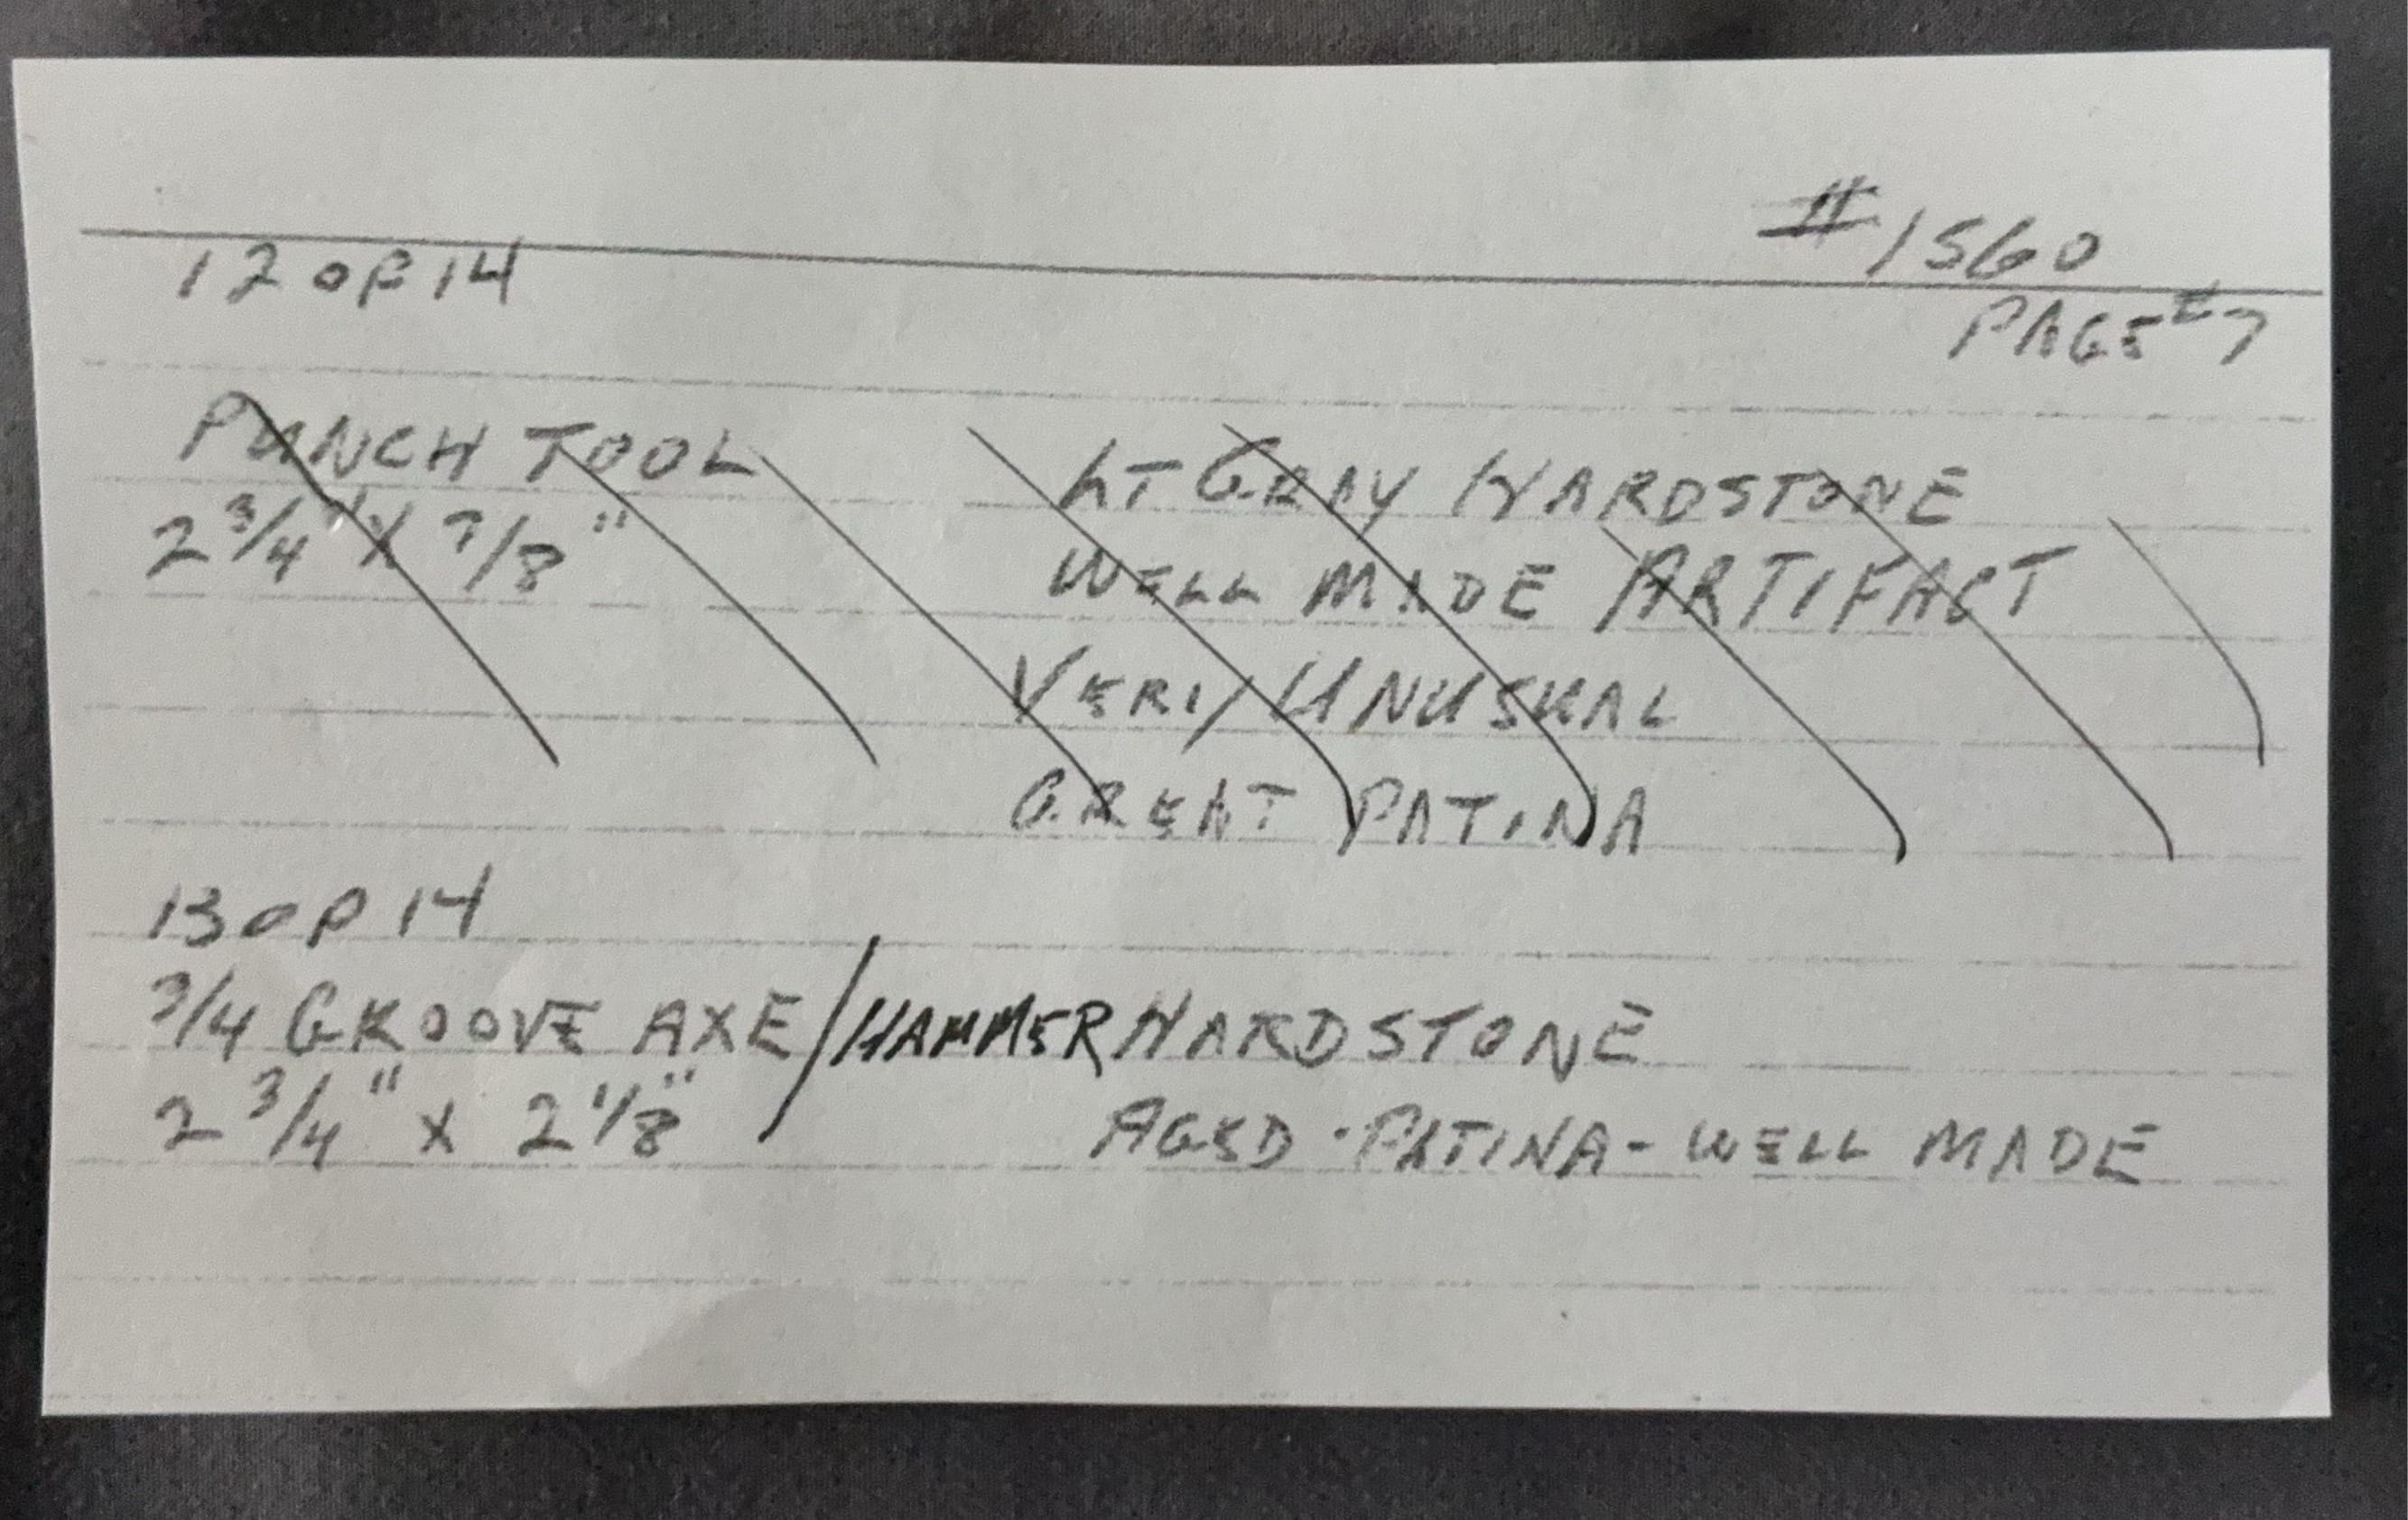 #1560
12 OF 14
PAGE #7
PUNCH TOOL LT GRAY HARDSTONE
2 3/4" X 7/8" WELL MADE ARTIFACT
VERY UNUSUAL
GREAT PATINA
13 OF 14
3/4 GROOVE AXE / HAMMER HARDSTONE
2 3/4" X 2 1/8" AGED - PATINA - WELL MADE